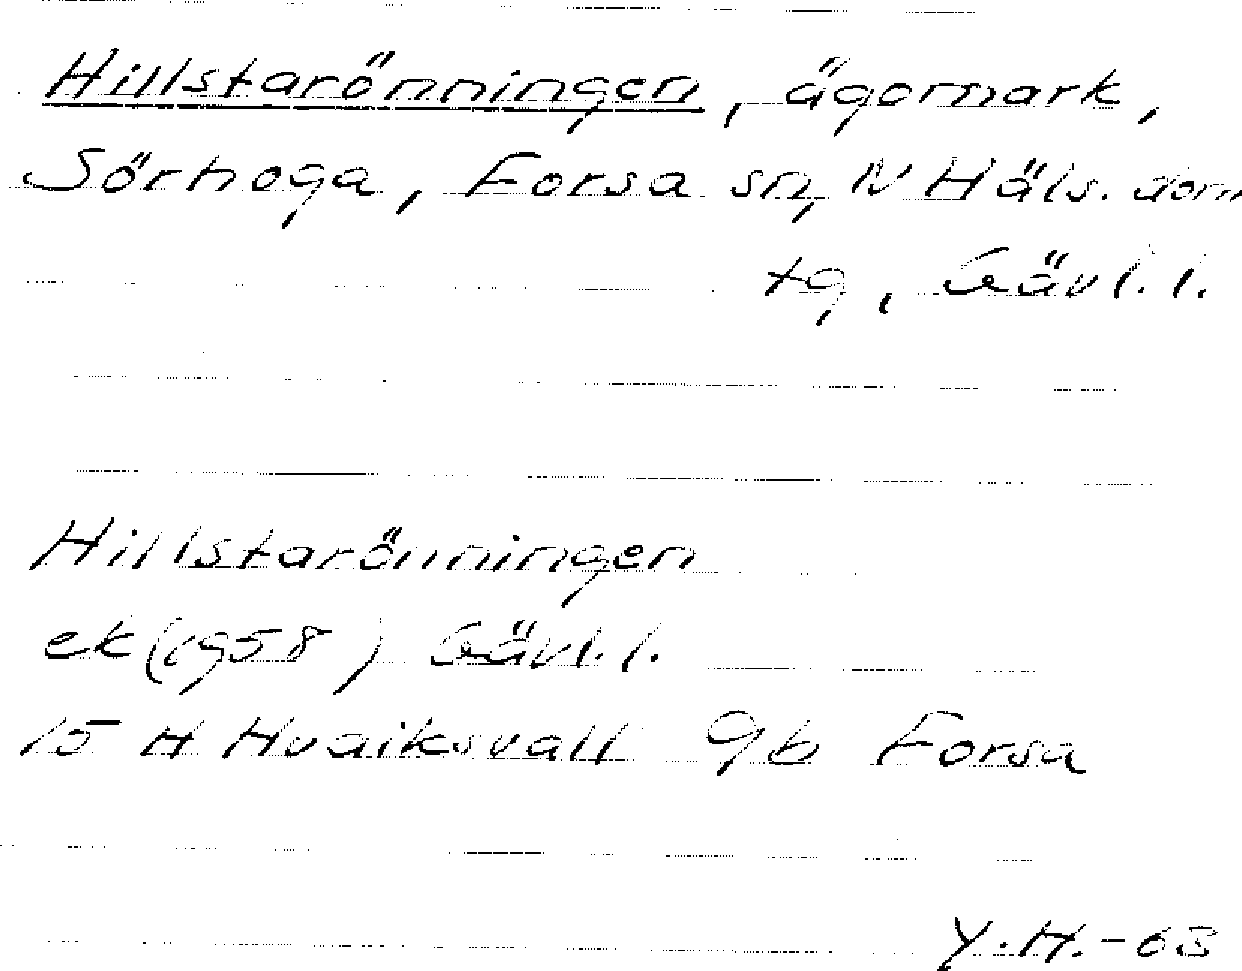 Hillstarönningen, ägomark,
Sörhoga, Forsa sn, N Häls. dom
tg, Gävl. l.
Hillstarönningen
ek (1958) Gävl. l.
15 H Hudiksvall 9b Forsa
Y.H.-63